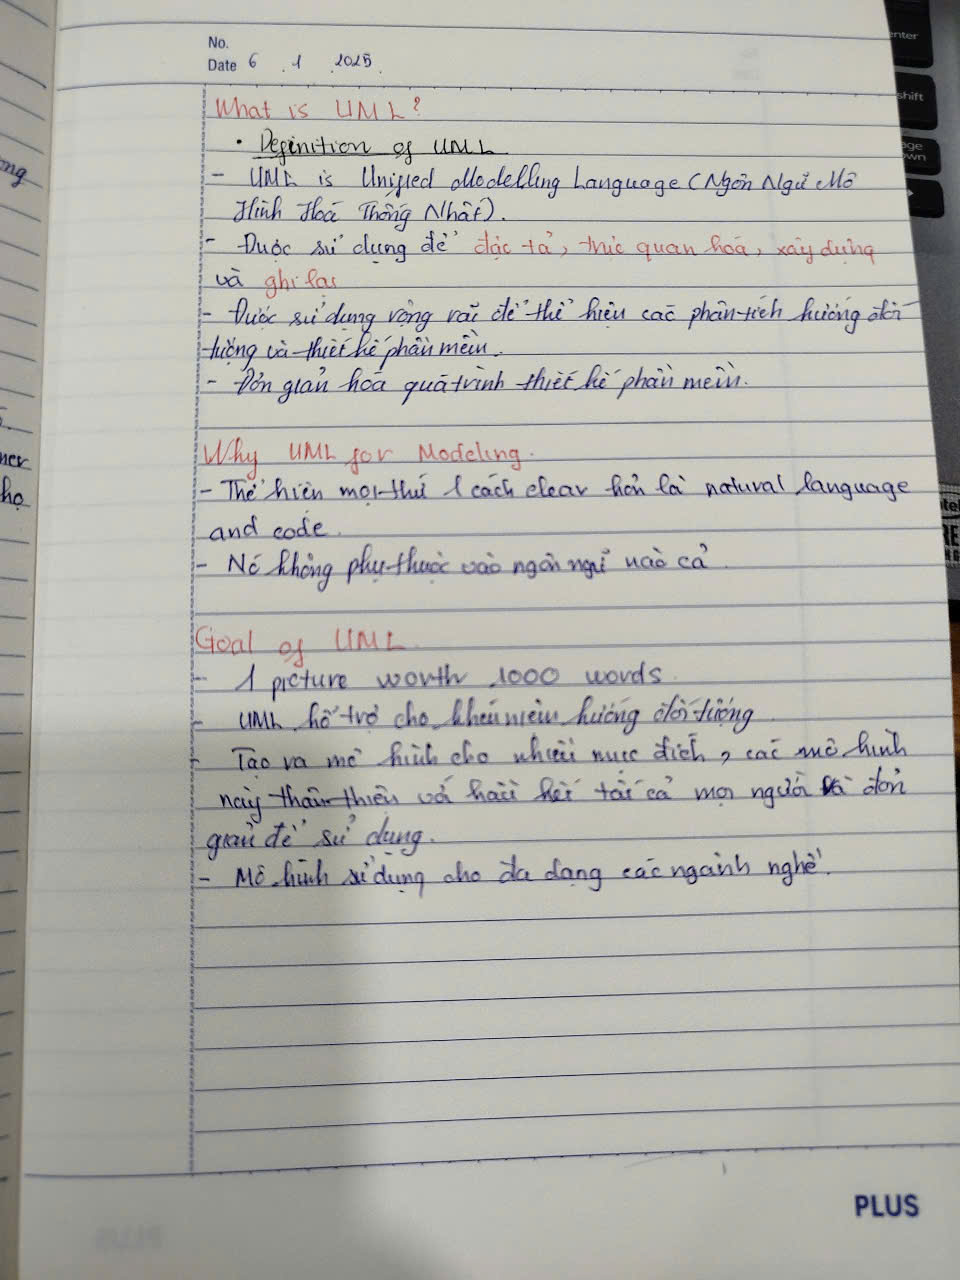 No.
Date 6 . 1 . 2025.
What is UML?
• Definition of UML
- UML is Unified Modelling Language (Ngôn Ngữ Mô
Hình Hoá Thống Nhất).
- Được sử dụng để đặc tả, trực quan hoá, xây dựng
và ghi lại
- Được sử dụng rộng rãi để thể hiện các phân tích hướng đối
tượng và thiết kế phần mềm.
- Đơn giản hoá quá trình thiết kế phần mềm.
Why UML for Modeling.
- Thể hiện mọi thứ 1 cách clear hơn là natural language
and code.
- Nó không phụ thuộc vào ngôn ngữ nào cả.
Goal of UML.
- 1 picture worth 1000 words.
- UML hỗ trợ cho khái niệm hướng đối tượng.
- Tạo ra mô hình cho nhiều mục đích, các mô hình
này thân thiện với hầu hết tất cả mọi người và đơn
giản để sử dụng.
- Mô hình sử dụng cho đa dạng các ngành nghề.
PLUS
ong
ner
họ
enter
shift
age
own
intel